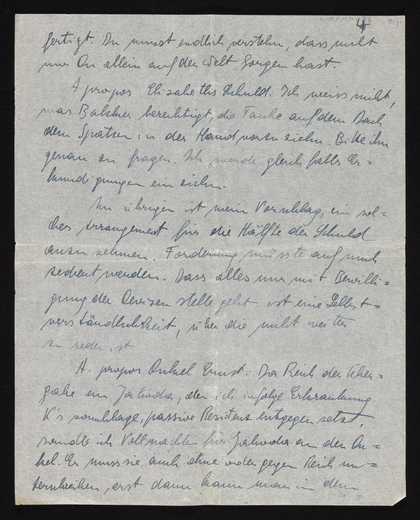 4
fertigt. Du musst endlich verstehn, dass nicht
nur Du allein auf der Welt Sorgen hast.
A propos Elisabeths Schuld. Ich weiss nicht,
was berechtigt, die Taube auf dem Dach
dem Spatzen in der Hand vorzuziehn. Bitte ihn
genau zu fragen. Ich werde gleichfalls Er-
kundigungen einziehn.
Im übrigen ist mein Vorschlag, ein sol-
ches Arrangement für die Hälfte der Schuld
anzunehmen. Forderung müsste auf mich
zediert werden. Dass alles nur mit Bewilli-
gung der Devisenstelle geht ist eine Selbst-
verständlichkeit, über die nicht weiter
zu reden ist.
A propos Onkel Ernst. Der Reich der Ueber-
gabe an Jahoda, den ich infolge Erkrankung
K's vorschlage, passive Resistenz entgegen setzt,
sandte ich Vollmacht für Jahoda an den On-
kel. Er muss sie auch ohne oder gegen Reich un-
terschreiben, erst dann kann man in dem